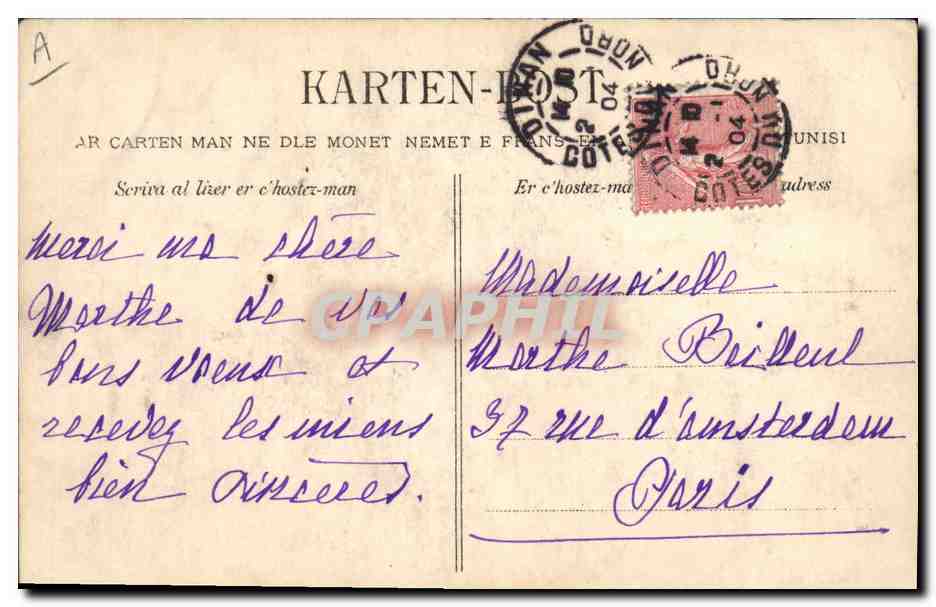 A
KARTEN-POST
AR CARTEN MAN NE DLE MONET NEMET E FRANS, EN TUNISI
Scriva al lizer er c'hostez-man
Er c'hostez-ma adress
DINAN
COTES DU NORD
14 10
2 1
04
DINAN
COTES DU NORD
14 10
2 1
04
Merci ma chère
Marthe de vos
bons voeux et
recevez les miens
bien sincères.
Mademoiselle
Marthe Bailleul
37 rue d'amsterdam
Paris
CPAPHIL